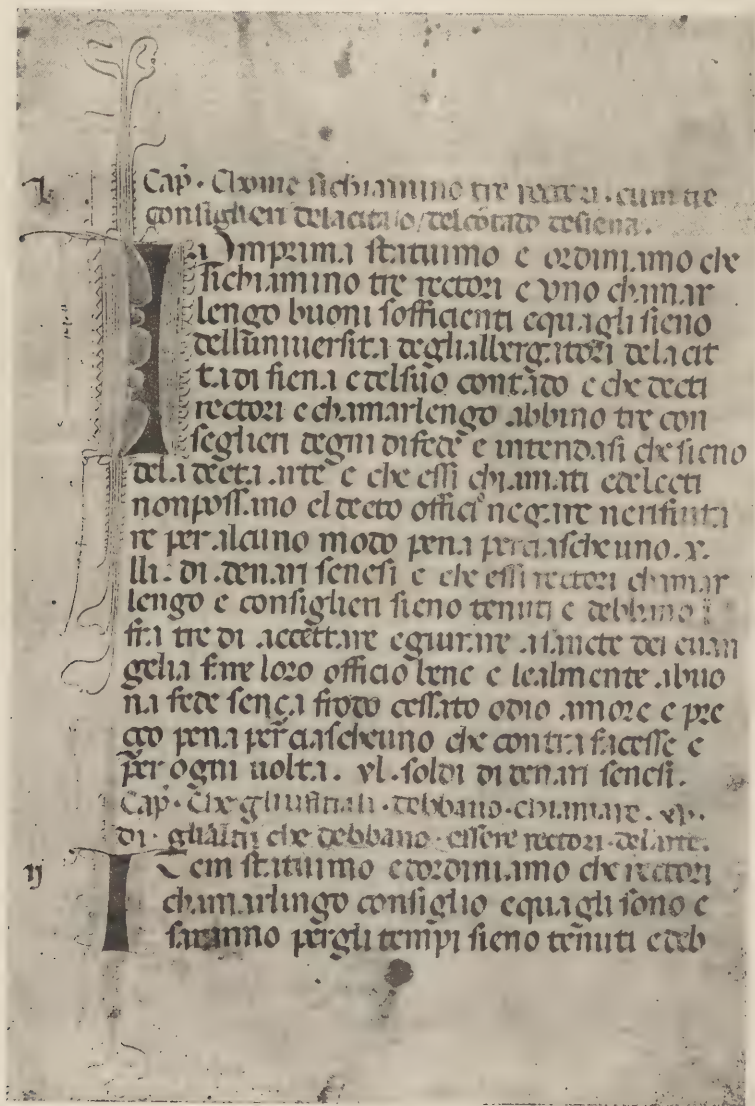 I.
Cap̄. Chome sichiamino tre rectori. cum tre
consiglieri delacita o/ delcōtado desiena.
Imprima statuimo e ordiniamo che
sichiamino tre rectori e vno chamar
lengo buoni sofficienti equagli sieno
dellūniuersita degliallbergatori delacit
ta di siena e delsuo contado e che decti
rectori e chamarlengo abbino tre con
seglieri degni di fede e intendasi che sieno
dela decta arte e che essi chiamati eelecti
nonpossano el decto officio negare nerifiuta
re per alcuno modo pena perciascheuno .x.
lli. di denari senesi e che essi rectori chamar
lengo e consiglieri sieno tenuti e debbano i
fra tre di accettare egiurare asancte dei euan
gelia fare loro officio bene e lealmente abuo
na fede sença frodo cessato odio amore e pre
ço pena per ciascheuno che contra facesse e
per ogni uolta. vl. soldi di denari senesi.
Cap̄. Che gliufitiali. debbano. chiamare. xv.
di. glialtri che debbano. essere rectori. delarte.
ij
Item statuimo eordiniamo che rectori
chamarlingo consiglio equagli sono e
saranno pergli tempi sieno tenuti edeb